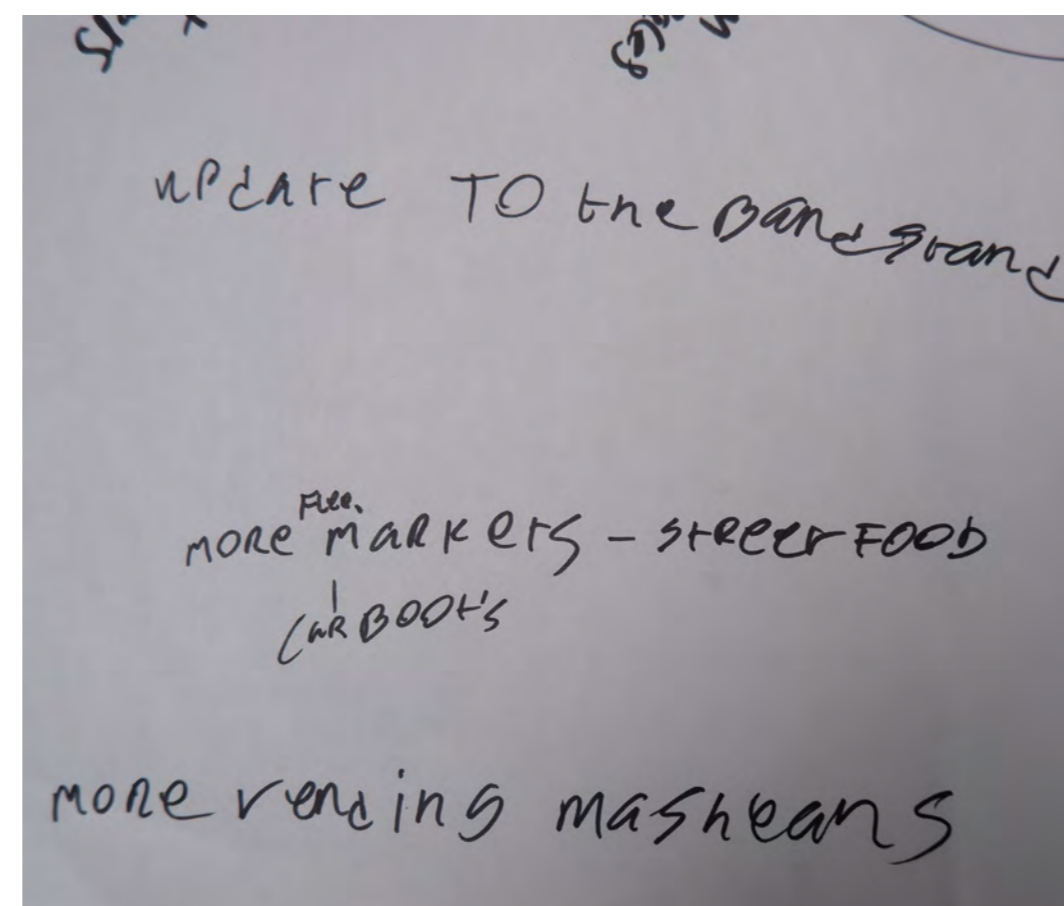 update TO the Bandstand
Flee
more markets - street FOOD
car BOOt's
more vending masheans